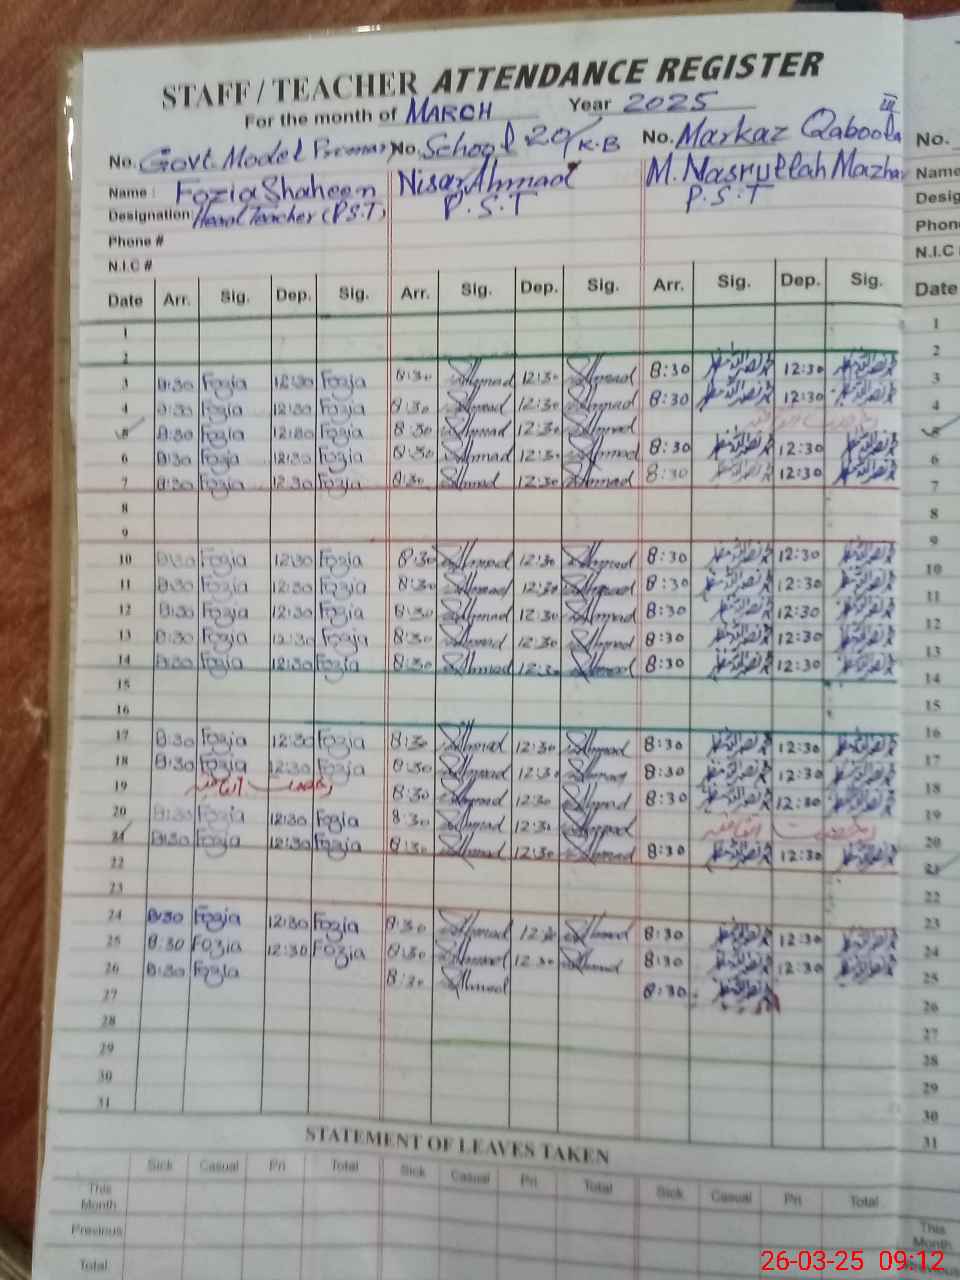 STAFF / TEACHER ATTENDANCE REGISTER
For the month of MARCH Year 2025
No. Govt. Model Primary No. School 20/K-B No. Markaz Qaboola
No.
Name : Fozia Shaheen Nisar Ahmad M. Nasrullah Mazhar
Name
Designation: Head Teacher (P.S.T) P.S.T P.S.T
Desig
Phone #
Phon
N.I.C #
N.I.C
Date Arr. Sig. Dep. Sig. Arr. Sig. Dep. Sig. Arr. Sig. Dep. Sig.
Date
1
2
3 8:30 Fozia 12:30 Fozia 8:30 Ahmad 12:30 Ahmad 8:30 12:30
4 8:30 Fozia 12:30 Fozia 8:30 Ahmad 12:30 Ahmad 8:30 12:30
5 8:30 Fozia 12:30 Fozia 8:30 Ahmad 12:30 Ahmad رخصت اتفاقیہ
6 8:30 Fozia 12:30 Fozia 8:30 Ahmad 12:30 Ahmad 8:30 12:30
7 8:30 Fozia 12:30 Fozia 8:30 Ahmad 12:30 Ahmad 8:30 12:30
8
9
10 8:30 Fozia 12:30 Fozia 8:30 Ahmad 12:30 Ahmad 8:30 12:30
11 8:30 Fozia 12:30 Fozia 8:30 Ahmad 12:30 Ahmad 8:30 12:30
12 8:30 Fozia 12:30 Fozia 8:30 Ahmad 12:30 Ahmad 8:30 12:30
13 8:30 Fozia 12:30 Fozia 8:30 Ahmad 12:30 Ahmad 8:30 12:30
14 8:30 Fozia 12:30 Fozia 8:30 Ahmad 12:30 Ahmad 8:30 12:30
15
16
17 8:30 Fozia 12:30 Fozia 8:30 Ahmad 12:30 Ahmad 8:30 12:30
18 8:30 Fozia 12:30 Fozia 8:30 Ahmad 12:30 Ahmad 8:30 12:30
19 رخصت اتفاقیہ 8:30 Ahmad 12:30 Ahmad 8:30 12:30
20 8:30 Fozia 12:30 Fozia 8:30 Ahmad 12:30 Ahmad رخصت اتفاقیہ
21 8:30 Fozia 12:30 Fozia 8:30 Ahmad 12:30 Ahmad 8:30 12:30
22
23
24 8:30 Fozia 12:30 Fozia 8:30 Ahmad 12:30 Ahmad 8:30 12:30
25 8:30 Fozia 12:30 Fozia 8:30 Ahmad 12:30 Ahmad 8:30 12:30
26 8:30 Fozia 8:30 Ahmad 8:30
27
28
29
30
31
1
2
3
4
5
6
7
8
9
10
11
12
13
14
15
16
17
18
19
20
21
22
23
24
25
26
27
28
29
30
31
STATEMENT OF LEAVES TAKEN
Sick Casual Pri Total Sick Casual Pri Total Sick Casual Pri Total
This Month
Previous
Total
This Month
Previous
26-03-25 09:12